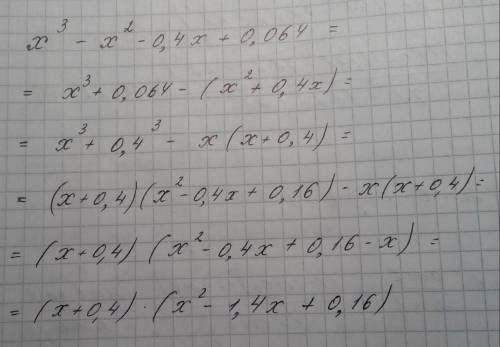 x³ - x² - 0,4x + 0,064 =
= x³ + 0,064 - (x² + 0,4x) =
= x³ + 0,4³ - x(x + 0,4) =
= (x + 0,4)(x² - 0,4x + 0,16) - x(x + 0,4) =
= (x + 0,4) (x² - 0,4x + 0,16 - x) =
= (x + 0,4) · (x² - 1,4x + 0,16)